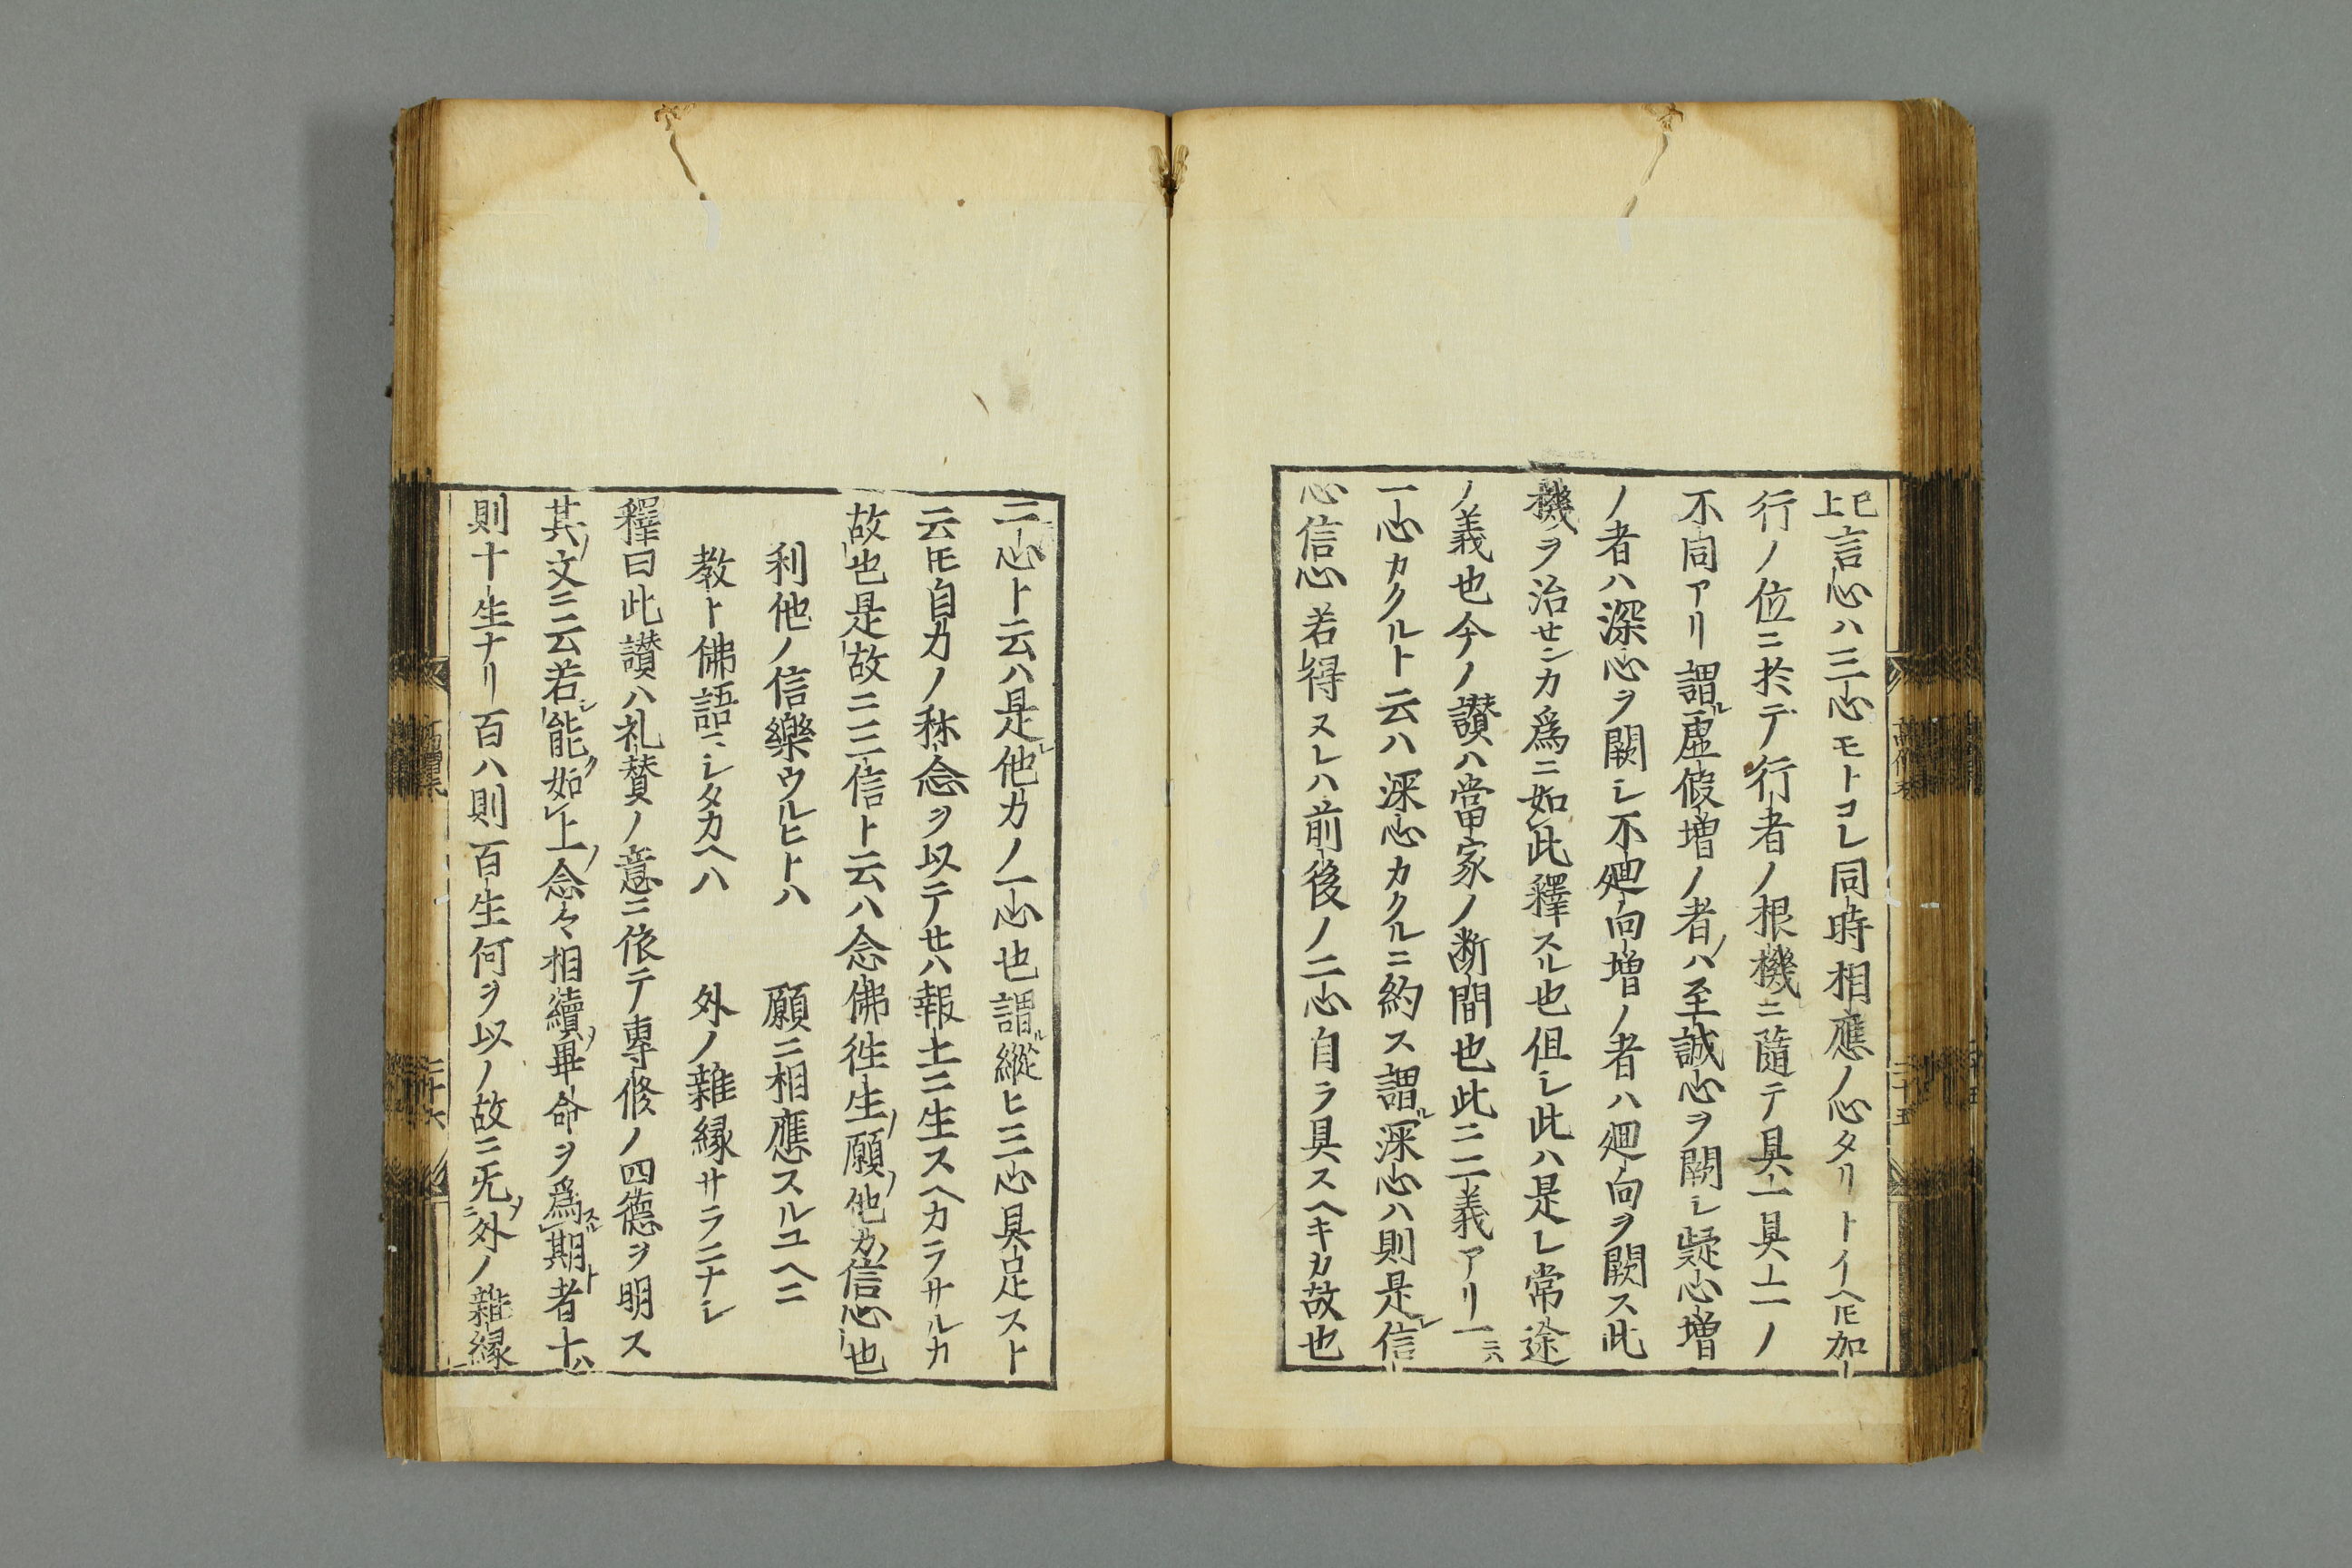 已上言心ハ三心モトコレ同時相應ノ心タリトイヘ𪜈加
行ノ位ニ於デ行者ノ根機ニ隨テ具一具二ノ
不同アリ謂ル虚假増ノ者ハ至誠心ヲ闕シ疑心増
ノ者ハ深心ヲ闕シ不廻向増ノ者ハ廻向ヲ闕ス此
機ヲ治センカ爲ニ如此釋スル也但シ此ハ是レ常途
ノ義也今ノ讃ハ當家ノ断間也此ニ二義アリ一ニハ
一心カクルト云ハ深心カクルニ約ス謂ル深心ハ則是レ信
心信心若得ヌレハ前後ノ二心自ラ具スヘキカ故也
二心ト云ハ是レ他力ノ一心也謂ル縦ヒ三心具足スト
云𪜈自力ノ称念ヲ以テせハ報土ニ生スヘカラサルカ
故也是故ニ三信ト云ハ念佛徃生ノ願ノ他力ノ信心也
利他ノ信樂ウルヒトハ　願ニ相應スルユヘニ
教ト佛語ニシタカヘハ　外ノ雜縁サラニナシ
釋曰此讃ハ礼賛ノ意ニ依テ専修ノ四德ヲ明ス
其ノ文ニ云若シ能ク如上ノ念々相續ノ畢命ヲ爲スル期ト者ハ十ハ
則十生ナリ百ハ則百生何ヲ以ノ故ニ旡ニ外ノ雜縁
二十六